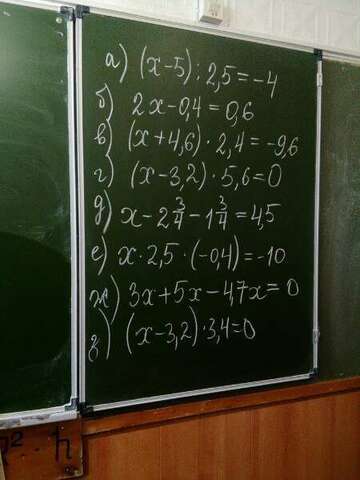 а) (x-5) : 2,5 = -4
б) 2x-0,4 = 0,6
в) (x+4,6) · 2,4 = -9,6
г) (x-3,2) · 5,6=0
д) x-2 3/4 - 1 3/4 = 4,5
е) x · 2,5 · (-0,4) = -10
ж) 3x+5x-4,7x = 0
з) (x-3,2) · 3,4=0